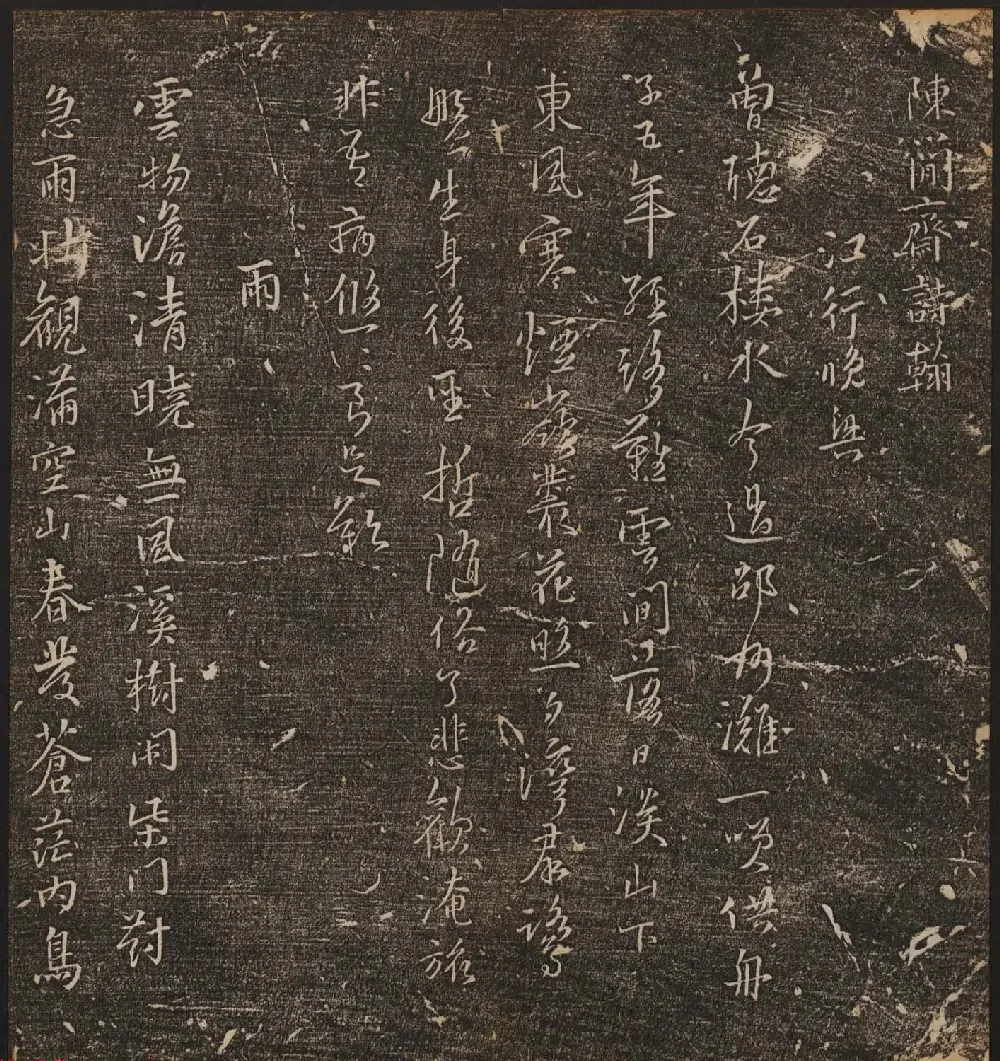 陳簡齋詩翰
江行晚興
曾聽石樓水今過邵州灘一笑供舟
子五年經路難雲間落日淡山下
東風寒煙嶺叢花照夕灣群鷺
盤生身後聖哲隨俗了悲歡淹旅
非吾病悠悠良足歎
雨
雲物澹清曉無風溪樹閑柴門對
急雨壯觀滿空山春發蒼茫內鳥